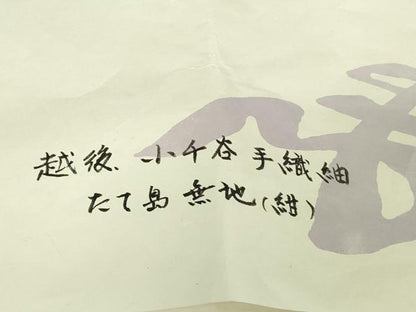 越後、小千谷手織紬
たて島無地(紺)